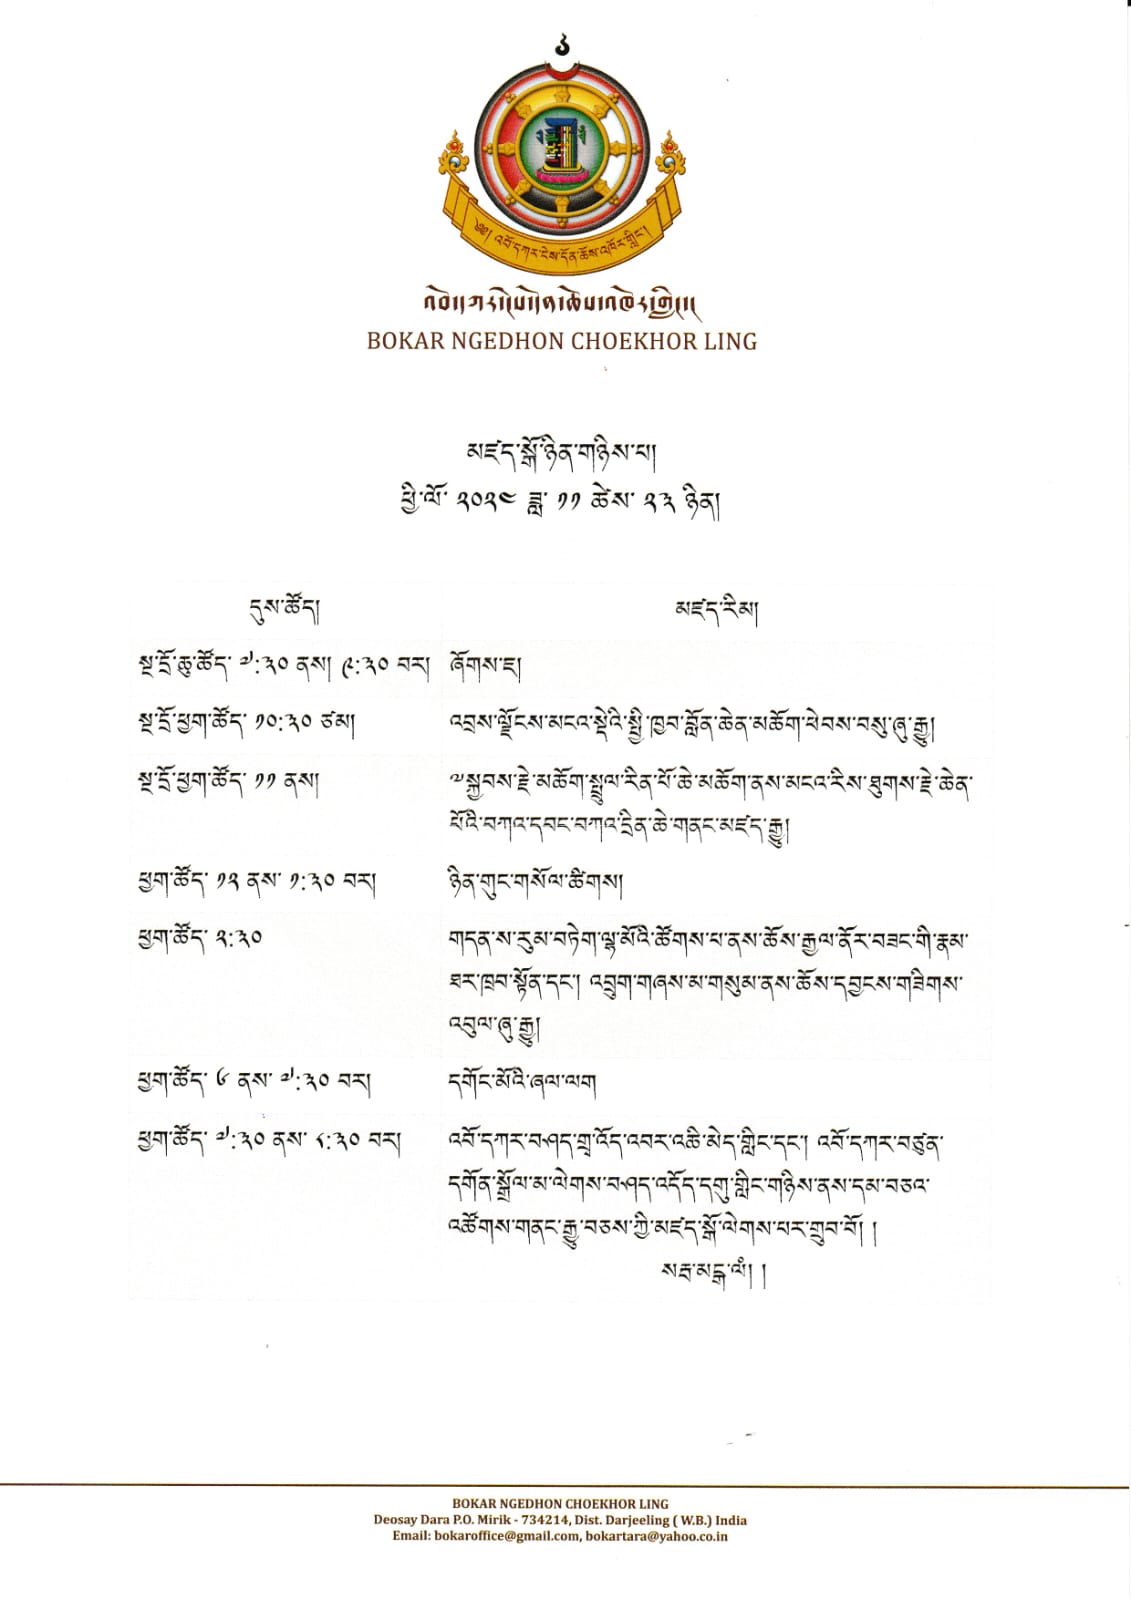 ༄༅། འབོ་དཀར་ངེས་དོན་ཆོས་འཁོར་གླིང་།
BOKAR NGEDHON CHOEKHOR LING
མཛད་སྒོ་ཉིན་གཉིས་པ།
ཕྱི་ལོ་ ༢༠༢༤ ཟླ་ ༡༡ ཚེས་ ༢༣ ཉིན།
དུས་ཚོད། མཛད་རིམ།
སྔ་དྲོ་ཆུ་ཚོད་ ༧:༣༠ ནས། ༩:༣༠ བར། ཞོགས་ཇ།
སྔ་དྲོ་ཕྱག་ཚོད་ ༡༠:༣༠ ཙམ། འབྲས་ལྗོངས་མངའ་སྡེའི་སྤྱི་ཁྱབ་བློན་ཆེན་མཆོག་ཕེབས་བསུ་ཞུ་རྒྱུ།
སྔ་དྲོ་ཕྱག་ཚོད་ ༡༡ ནས། ༧སྐྱབས་རྗེ་མཆོག་སྤྲུལ་རིན་པོ་ཆེ་མཆོག་ནས་མངའ་རིས་ཐུགས་རྗེ་ཆེན་
པོའི་བཀའ་དབང་བཀའ་དྲིན་ཆེ་གནང་མཛད་རྒྱུ།
ཕྱག་ཚོད་ ༡༢ ནས་ ༡:༣༠ བར། ཉིན་གུང་གསོལ་ཚིགས།
ཕྱག་ཚོད་ ༢:༣༠ གདན་ས་རུམ་བཏེག་ལྷ་མོའི་ཚོགས་པ་ནས་ཆོས་རྒྱལ་ནོར་བཟང་གི་རྣམ་
ཐར་ཁྲབ་སྟོན་དང་། འབྲུག་གཞས་མ་གསུམ་ནས་ཆོས་དབྱངས་གཟིགས་
འབུལ་ཞུ་རྒྱུ།
ཕྱག་ཚོད་ ༦ ནས་ ༧:༣༠ བར། དགོང་མོའི་ཞལ་ལག
ཕྱག་ཚོད་ ༧:༣༠ ནས་ ༨:༣༠ བར། འབོ་དཀར་བཤད་གྲྭ་འོད་འབར་འཆི་མེད་གླིང་དང་། འབོ་དཀར་བཙུན་
དགོན་སྒྲོལ་མ་ལེགས་བཤད་འདོད་དགུ་གླིང་གཉིས་ནས་དམ་བཅའ་
འཚོགས་གནང་རྒྱུ་བཅས་ཀྱི་མཛད་སྒོ་ལེགས་པར་གྲུབ་བོ། །
སརྦ་མངྒ་ལཾ། །
BOKAR NGEDHON CHOEKHOR LING
Deosay Dara P.O. Mirik - 734214, Dist. Darjeeling ( W.B.) India
Email: bokaroffice@gmail.com, bokartara@yahoo.co.in